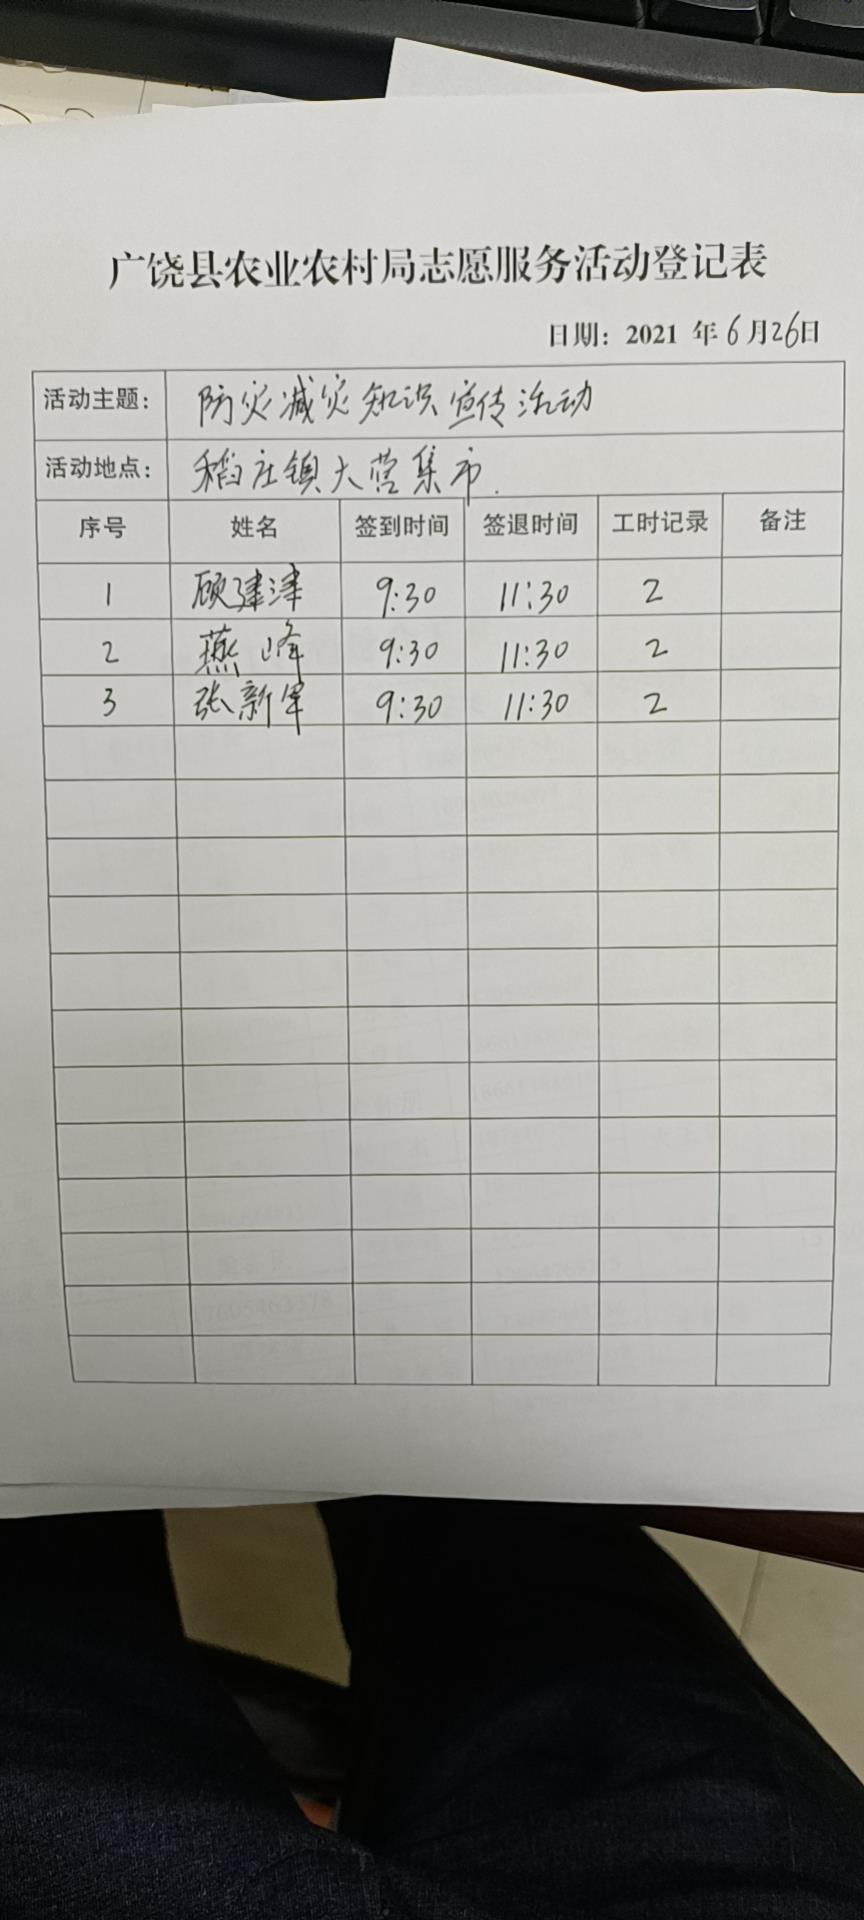 广饶县农业农村局志愿服务活动登记表
日期：2021 年6月26日
活动主题： 防灾减灾知识宣传活动
活动地点： 稻庄镇大营集市.
序号 姓名 签到时间 签退时间 工时记录 备注
1 顾建津 9:30 11:30 2
2 燕峰 9:30 11:30 2
3 张新军 9:30 11:30 2